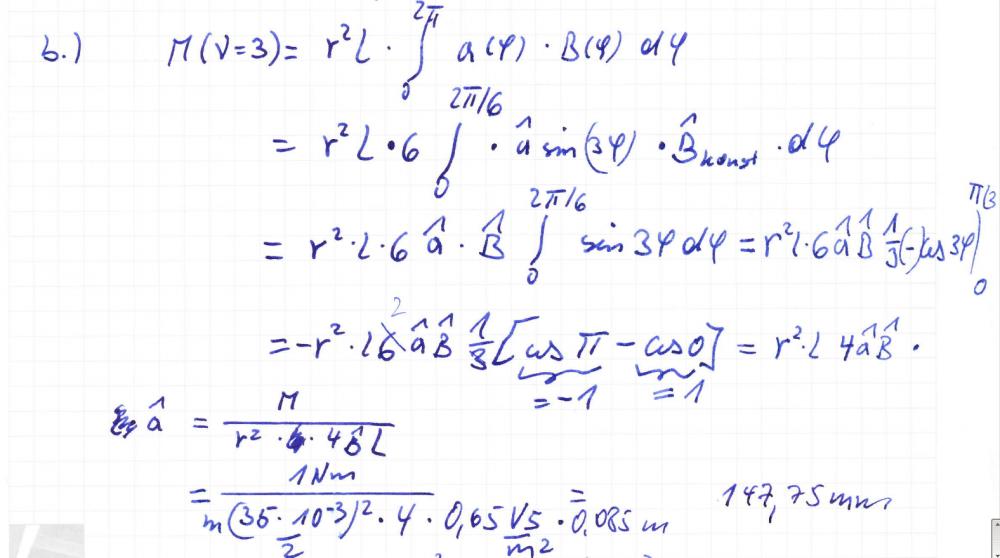 b.) M(ν=3) = r² L · ∫₀^2π a(φ) · B(φ) dφ
= r² L · 6 ∫₀^2π/6 · â sin(3φ) · B̂konst · dφ
= r² · L · 6 â · B̂ ∫₀^2π/6 sin 3φ dφ = r² L · 6 â B̂ 1/3 (-) cos 3φ |₀^π/3
= - r² · L 6 2 â B̂ 1/3 [cos π - cos 0] = r² · L 4 â B̂ ·
= -1 = 1
â = M / r² · 4 B̂ L
= 1 Nm / m (35/2 · 10⁻³)² · 4 · 0,65 Vs/m² · 0,085 m = 147,75